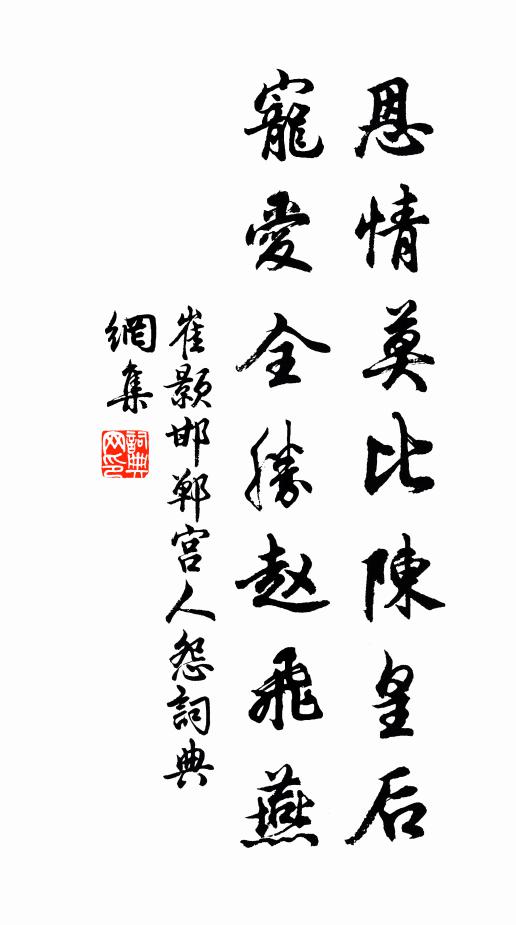 恩情莫比陳皇后
寵愛全勝赵飛燕
崔顥邯鄲宫人怨詞典
網集
詞典網印